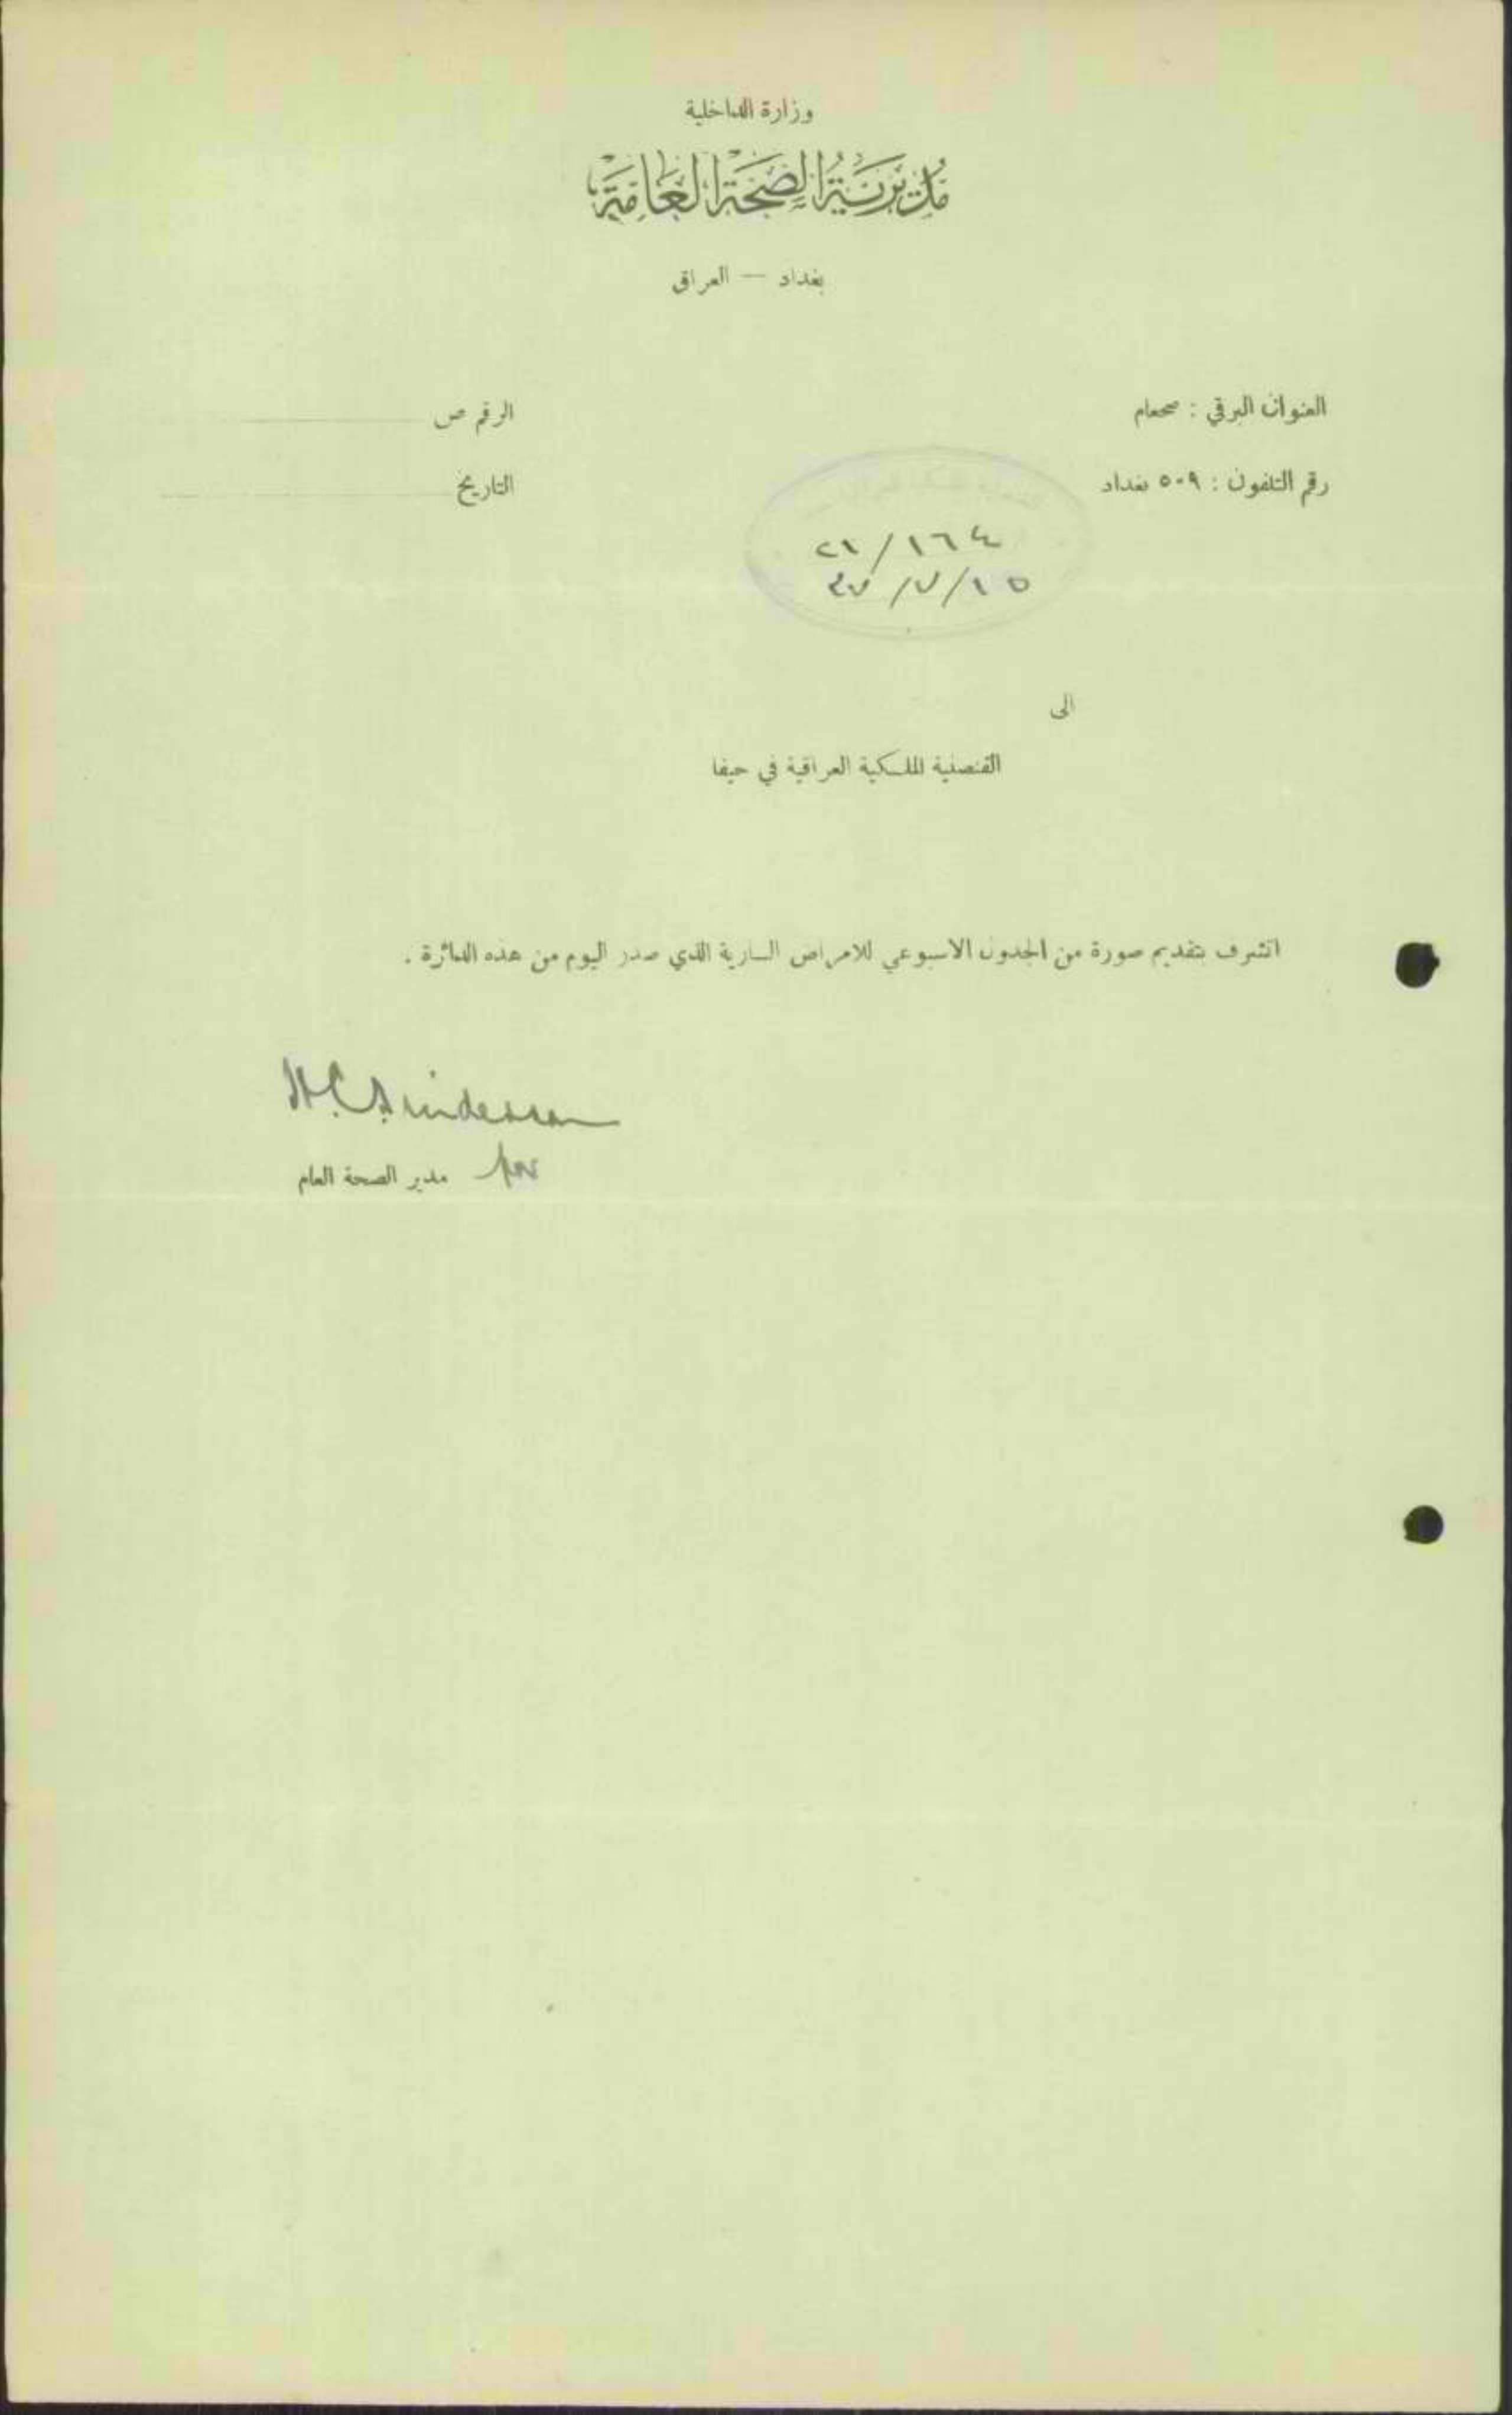 وزارة الداخلية
مديرية الصحة العامة
بغداد — العراق
العنوان البرقي : صحعام
الرقم ص
رقم التلفون : ٥٠٩ بغداد
التاريخ
٢١/١٦٤
٣٧/٧/١٥
الى
القنصلية الملكية العراقية في حيفا
اتشرف بتقديم صورة من الجدول الاسبوعي للامراض السارية الذي صدر اليوم من هذه الدائرة .
for مدير الصحة العام